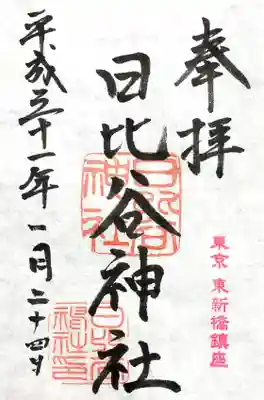 奉拝
東京 東新橋鎮座
日比谷神社
平成三十一年一月二十四日